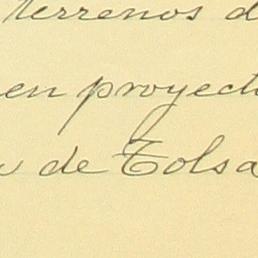 terrenos d
en proyect
de Tolsa